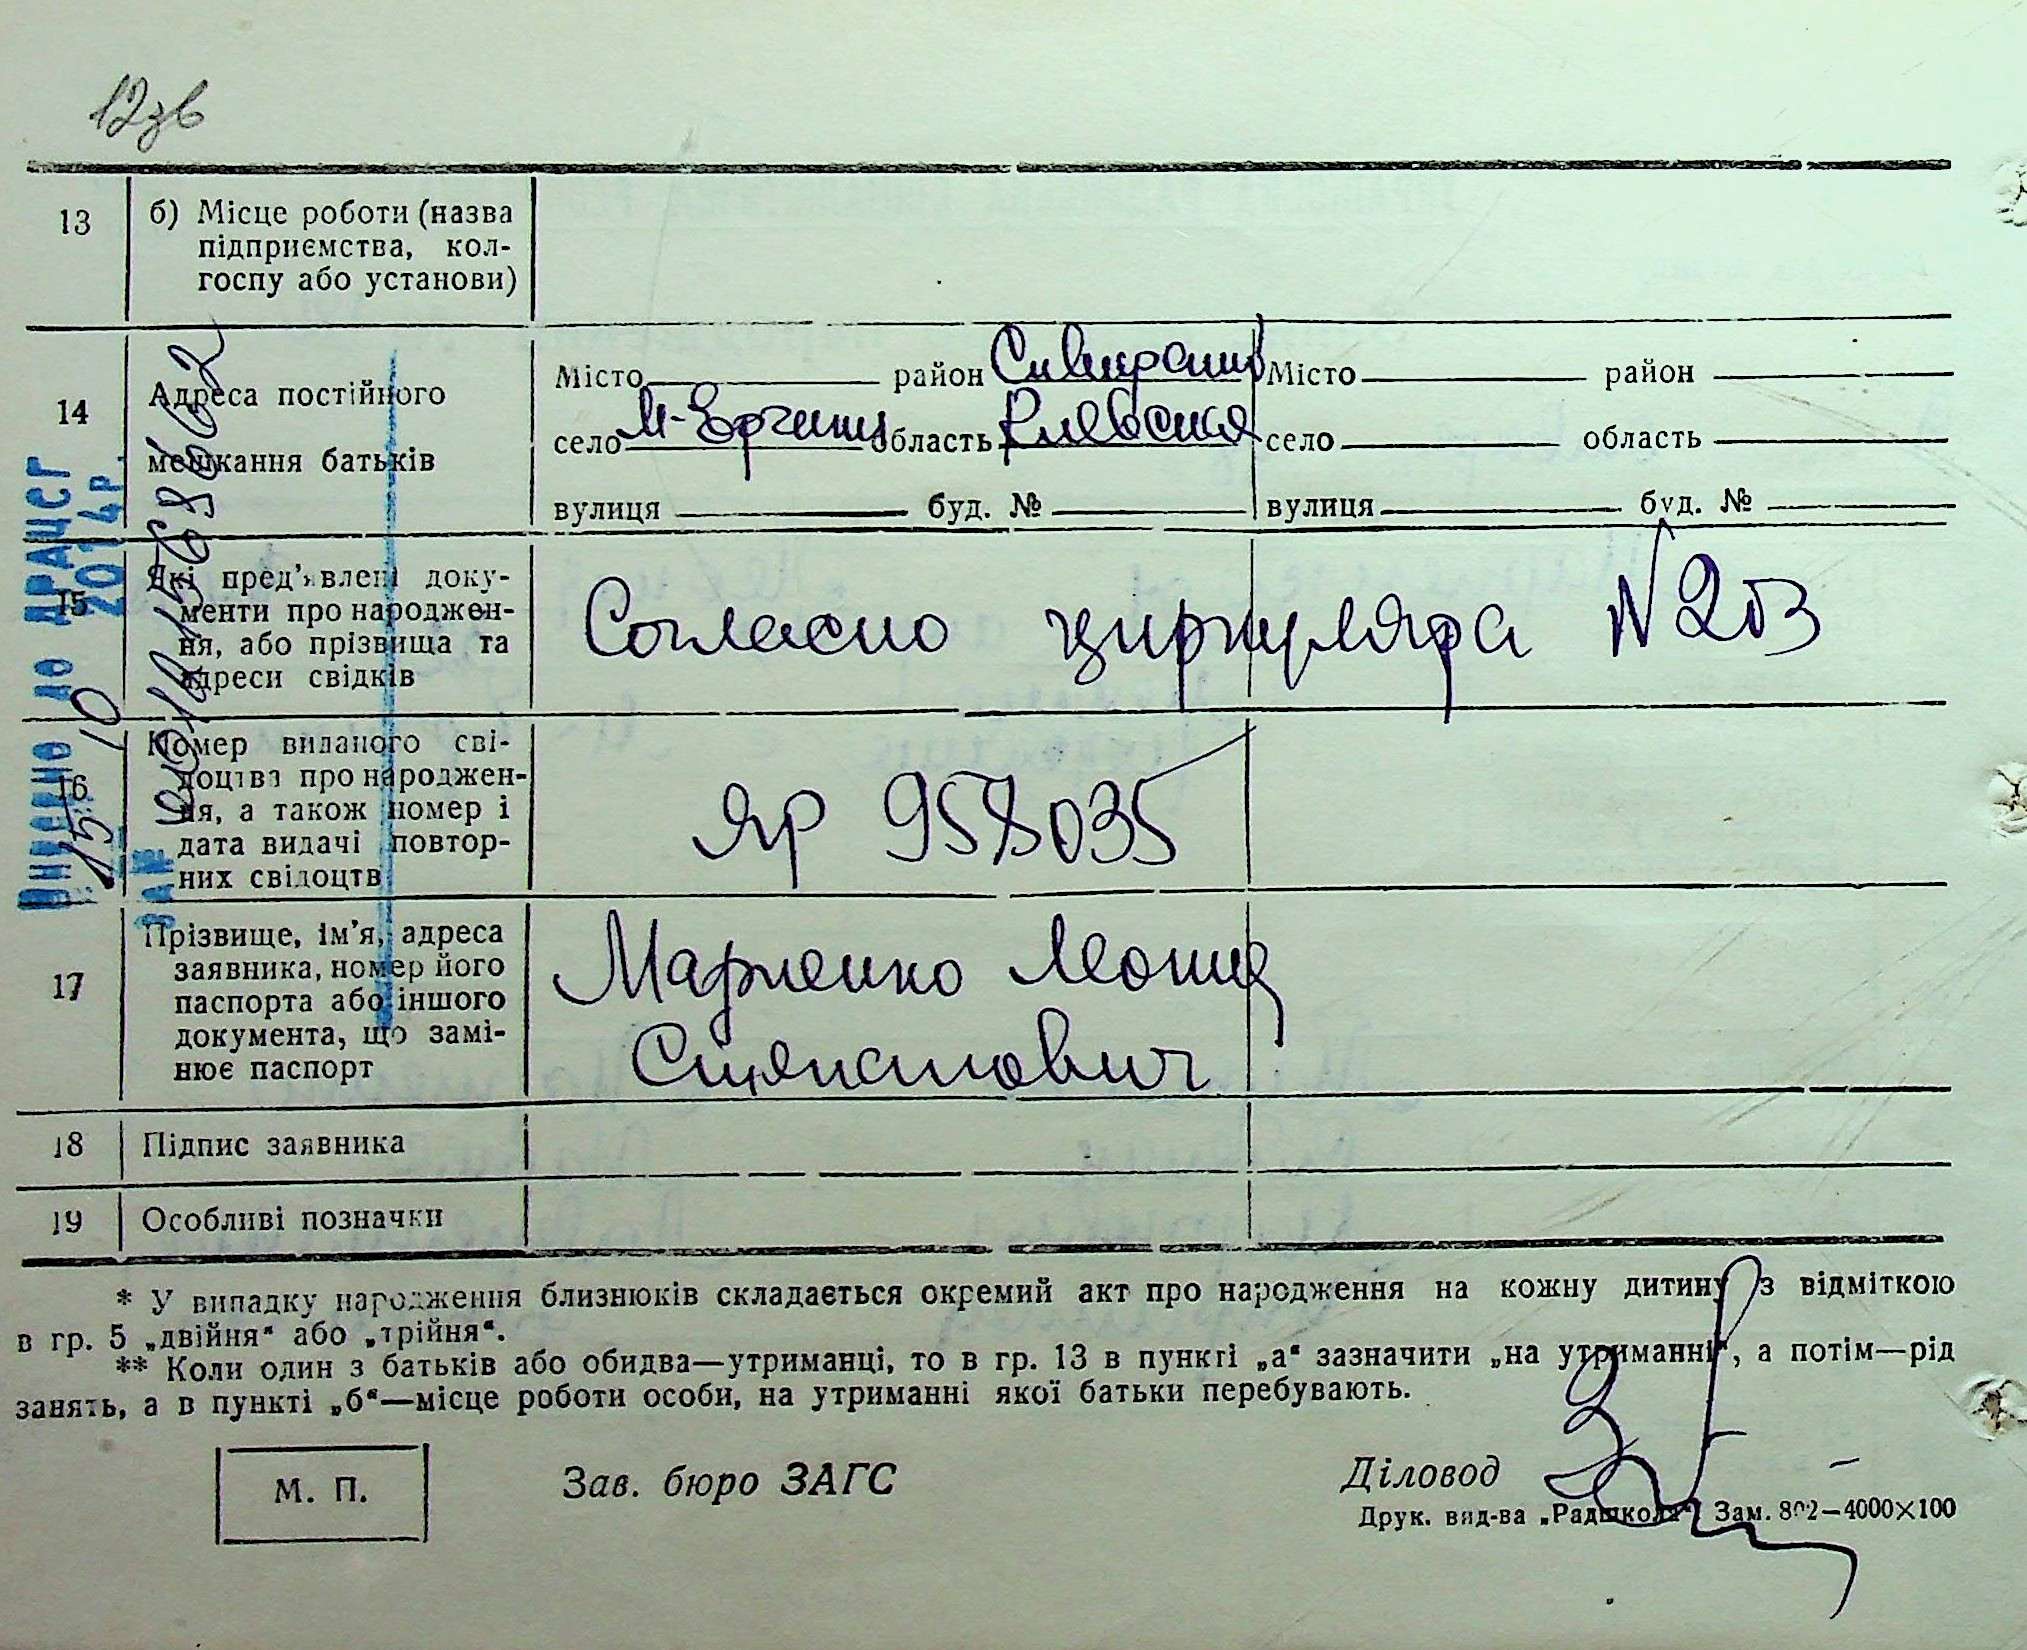 12зв
13
б) Місце роботи (назва
підприємства, кол-
госпу або установи)
14
Адреса постійного
мешкання батьків
Місто район
село М- область Киевская
вулиця буд. №
Місто район
село область
вулиця буд. №
15
Які пред'явлені доку-
менти про народжен-
ня, або прізвища та
адреси свідків
Согласно циркуляра N 203
16
Номер виданого сві-
доцтва про народжен-
ня, а також номер і
дата видачі повтор-
них свідоцтв
ЯР 958035
17
Прізвище, ім'я, адреса
заявника, номер його
паспорта або іншого
документа, що замі-
нює паспорт
Марченко Леонид
Степанович
18
Підпис заявника
19
Особливі позначки
Внесено до ДРАЦСГ
15 10 2014 р.
* У випадку народження близнюків складається окремий акт про народження на кожну дитину з відміткою
в гр. 5 „двійня" або „трійня".
** Коли один з батьків або обидва—утриманці, то в гр. 13 в пункті „а" зазначити „на утриманні", а потім—рід
занять, а в пункті „б"—місце роботи особи, на утриманні якої батьки перебувають.
М. П.
Зав. бюро ЗАГС
Діловод
Друк. вид-ва „Радшкола" Зам. 802—4000×100